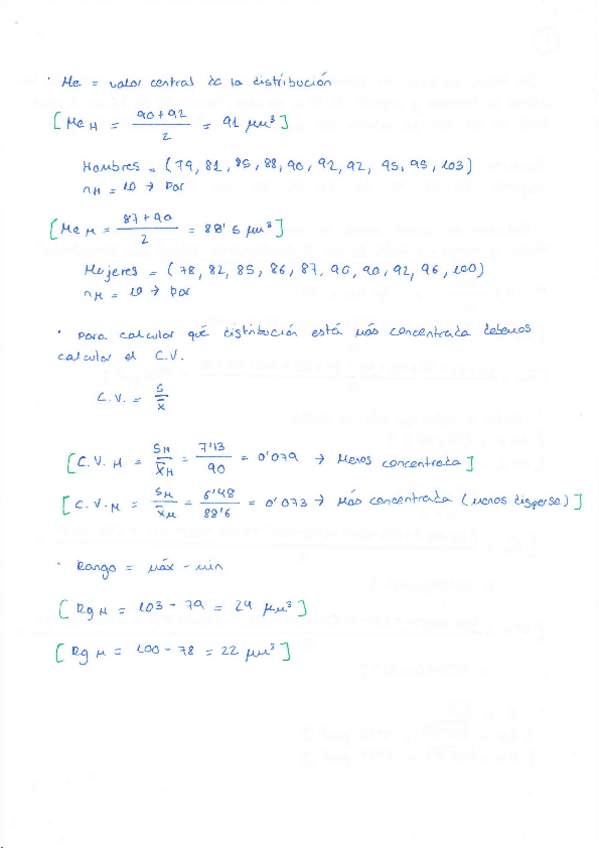 · Me = valor central de la distribución
[Me H = (90+92)/2 = 91 μm³]
Hombres = (79, 81, 85, 88, 90, 92, 92, 95, 95, 103)
nH = 10 → par
[Me M = (87+90)/2 = 88'5 μm³]
Mujeres = (78, 82, 85, 86, 87, 90, 90, 92, 96, 100)
nM = 10 → par
· Para calcular qué distribución está más concentrada debemos
calcular el C.V.
C.V. = S/x̄
[C.V. H = SH/x̄H = 7'13/90 = 0'079 → Menos concentrada]
[C.V. M = SM/x̄M = 6'48/88'6 = 0'073 → Más concentrada (menos dispersa)]
· Rango = máx - min
[Rg H = 103 - 79 = 24 μm³]
[Rg M = 100 - 78 = 22 μm³]